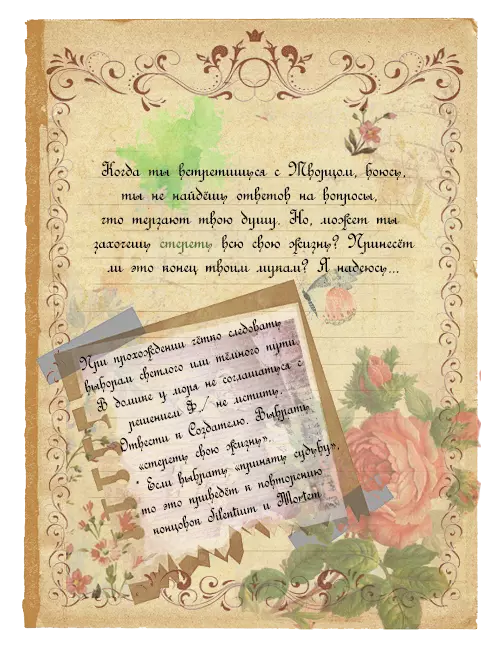 Когда ты встретишься с Творцом, боюсь,
ты не найдёшь ответов на вопросы,
что терзают твою душу. Но, может ты
захочешь стереть всю свою жизнь? Принесёт
ли это конец твоим мукам? Я надеюсь...
При прохождении чётко следовать
выборам светлого или тёмного пути.
В домике у моря не соглашаться с
решением Ф / не мстить.
Отвести к Создателю. Выбрать
«стереть свою жизнь».
* Если выбрать «принять судьбу»,
то это приведёт к повторению
концовок Silentium и Mortem